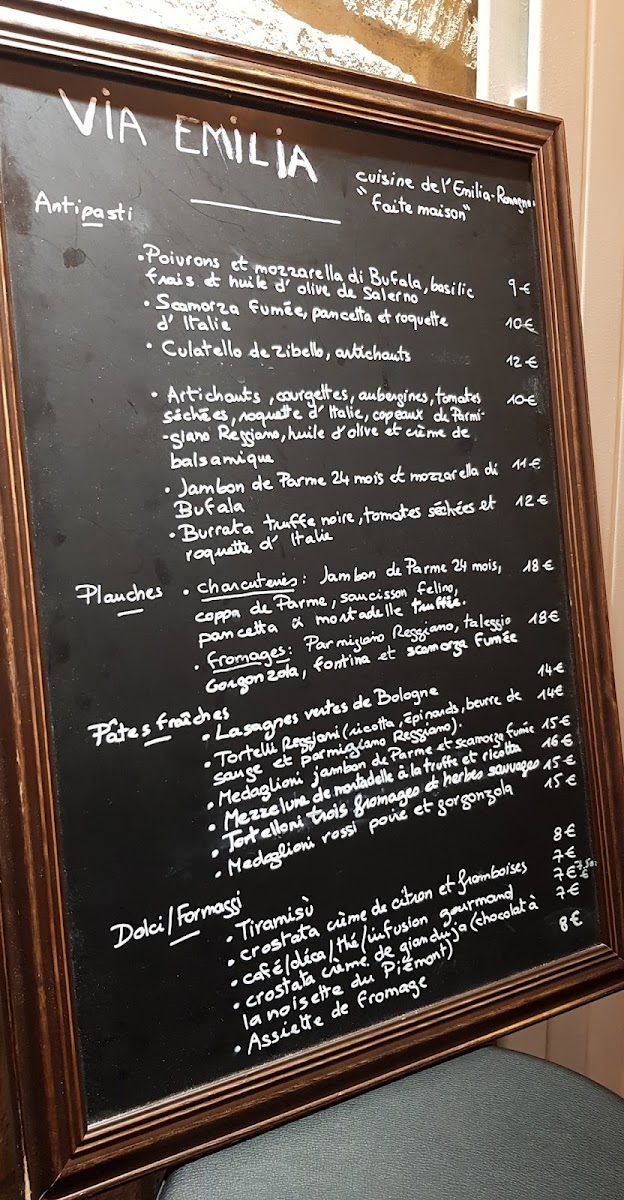 VIA EMILIA
cuisine de l'Emilia-Romagna
"faite maison"
Antipasti
• Poivrons et mozzarella di Bufala, basilic
frais et huile d'olive de Salerno 9€
• Scamorza fumée, pancetta et roquette
d'Italie 10€
• Culatello de Zibello, artichauts 12€
• Artichauts, courgettes, aubergines, tomates 10€
séchées, roquette d'Italie, copeaux de Parmi-
-giano Reggiano, huile d'olive et crème de
balsamique
• Jambon de Parme 24 mois et mozzarella di 11€
Bufala
• Burrata truffe noire, tomates séchées et 12€
roquette d'Italie
Planches • charcuteries: Jambon de Parme 24 mois, 18€
coppa de Parme, saucisson felino,
pancetta & mortadelle truffée.
• fromages: Parmigiano Reggiano, taleggio 18€
Gorgonzola, fontina et scamorza fumée
Pâtes fraîches
• Lasagnes vertes de Bologne 14€
• Tortelli Reggiani (ricotta, épinards, beurre de 14€
sauge et parmigiano Reggiano).
• Medaglioni jambon de Parme et scamorza fumée 15€
• Mezzelune de mortadelle à la truffe et ricotta 16€
• Tortelloni trois fromages et herbes sauvages 15€
• Medaglioni rossi poire et gorgonzola 15€
Dolci/Formaggi
• Tiramisù 8€
• crostata crème de citron et framboises 7€
• café/déca/thé/infusion gourmand 7€
• crostata crème de gianduja (chocolat à 7€
la noisette du Piémont)
• Assiette de fromage 8€